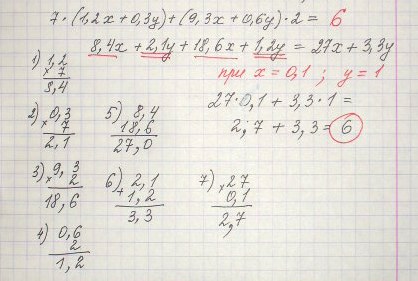 7·(1,2x+0,3y)+(9,3x+0,6y)·2= 6
8,4x+2,1y+18,6x+1,2y=27x+3,3y
при x=0,1; y=1
27·0,1+3,3·1=
2,7+3,3=6
1) 1,2
× 7
8,4
2) 0,3
× 7
2,1
3) 9,3
× 2
18,6
4) 0,6
2
1,2
5) 8,4
18,6
27,0
6) 2,1
+ 1,2
3,3
7) × 27
0,1
2,7